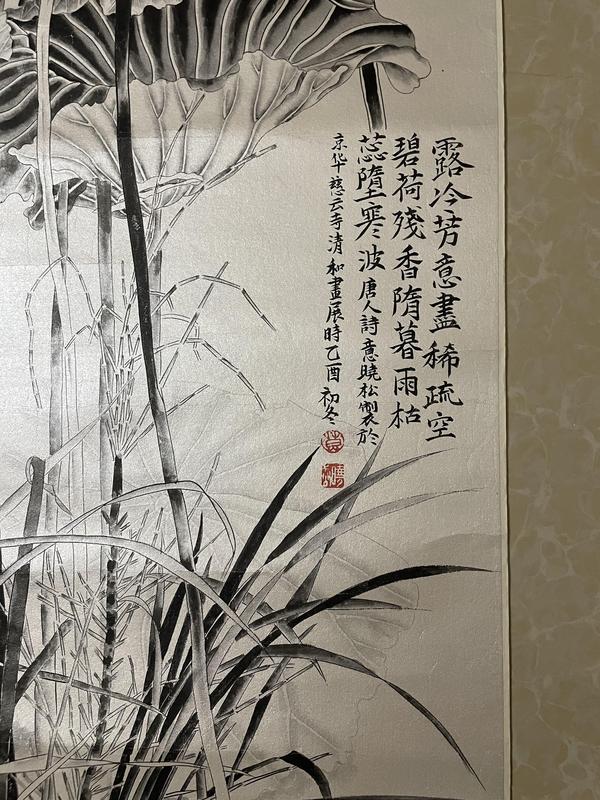 露冷芳意盡稀疏空
碧荷殘香隋暮雨枯
蕊墮寒波 唐人詩意曉松製於
京华慈云寺清和畫展時乙酉初冬